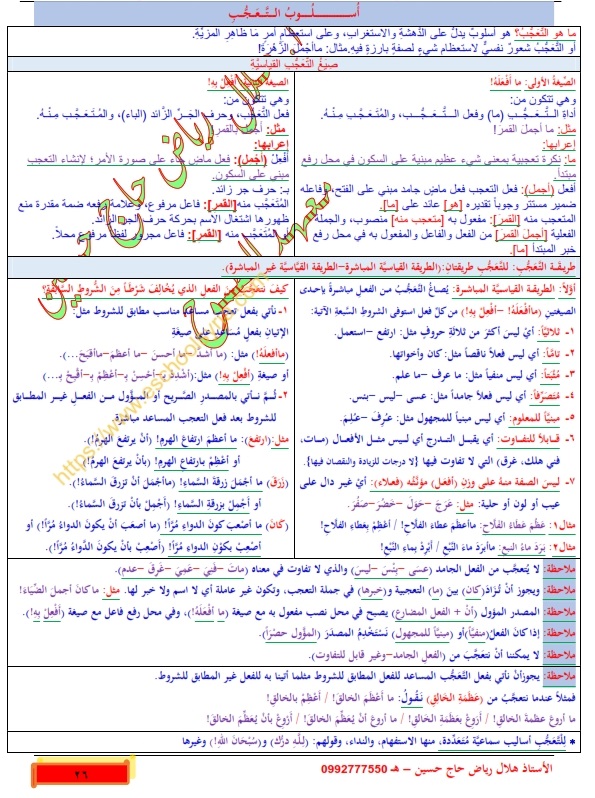 أُســـلُـــوبُ الـتَّـعَـجُّـبِ
ما هو التَّعجُّبُ؟ هو أسلوبٌ يدلُّ على الدَّهشةِ والاستغرابِ، وعلى استعظامِ أمرٍ مَا ظاهرِ المزيَّةِ.
أو التَّعجُّبُ شعورٌ نفسيٌّ لاستعظامِ شيءٍ لصفةٍ بارزةٍ فيهِ.مثال: ماأجملَ الزَّهْرَةَ!
صيَغُ التَّعَجُّبِ القياسيَّةِ
الصِّيغةُ الأولى: ما أَفْعَلَهُ!
وهي تتكون من:
أداةِ التَّعجُّبِ (ما) وفعل التَّعجُّبِ، والمُتَعَجَّبِ مِنْهُ.
مثل: ما أجملَ القمرَ!
إعرابها:
ما: نكرة تعجبية بمعنى شيء عظيم مبنية على السكون في محل رفع
مبتدأ.
أفعل (أجمل): فعل التعجب فعل ماضٍ جامد مبني على الفتح، وفاعله
ضمير مستتر وجوباً تقديره [هو] عائد على [ما].
المتعجب منه [القمر]: مفعول به [متعجب منه] منصوب، والجملة
الفعلية [أجمل القمر] من الفعل والفاعل والمفعول به في محل رفع
خبر المبتدأ [ما].
وهي تتكون من:
فعل التَّعجُّب، وحرف الجَرِّ الزَّائد (الباء)، والمُتَعَجَّبِ مِنْهُ.
مثل: أجمِلْ بالقمرِ!
إعرابها:
أفعِلْ (أجمِل): فعل ماضٍ جاء على صورة الأمر؛ لإنشاء التعجب
مبني على السكون.
بـ: حرف جر زائد.
المُتعجَّب منه [القمر]: فاعل مرفوع، وعلامة رفعه ضمة مقدرة منع
ظهورها اشتغال الاسم بحركة حرف الجر الزائد.
أو المُتعجَّب منه [القمر]: فاعل مجرور لفظاً مرفوع محلاً.
طريقة التَّعجُّب: للتَّعجُّب طريقتان:(الطريقة القياسية المباشرة–الطريقة القيَّاسيَّة غير المباشرة).
أوّلاً: الطريقة القياسيَّة المباشرة: يُصاغُ التَّعجُّبُ مِنَ الفعلِ مباشرةً بإحدى
الصيغتينِ (ماأفعلَهُ! –أفعِلْ بِهِ!) من كلِّ فعلٍ استوفى الشروطَ السَّبعةَ الآتيةَ:
١- ثلاثيَّاً: أيْ ليسَ أكثرَ من ثلاثةِ حروفٍ مثل: ارتفع –استعمل.
٢- تامَّاً: أي ليس فعلاً ناقصاً مثل: كان وأخواتها.
٣- مُثبَتاً: أي ليس منفياً مثل: ما عرف –ما علم.
٤- متصرِّفاً: أي ليس فعلاً جامداً مثل: عسى –ليس –بئس.
٥- مبنيَّاً للمعلوم: أي ليس مبنياً للمجهول مثل: عُرِفَ –عُلِمَ.
٦- قابلاً للتفاوت: أي يقبل التدرج أي ليس مثل الأفعال (مات،
فني هلك، غرق) التي لا تفاوت فيها {لا درجات للزيادة والنقصان فيها}.
٧- ليس الصفة منهُ على وزنِ (أفعل) مؤنَّثُه (فعلاء): أيْ غير دال على
عيب أو لون أو حلية: مثل: عَرَجَ –حَوَلَ –خَضَرَ–صَفَرَ.
مثال١: عَظُمَ عَطَاءُ الفلَّاحِ: ماأعظَمَ عطاءَ الفلاحِ! / أعْظِمْ بِعَطَاءِ الفلاحِ!
مثال٢: بَرَدَ ماءُ النبعِ: ماأبردَ ماءَ النَّبْعِ / أبْرِدْ بماءِ النَّبعِ!
كيفَ نتعجَّبُ مِنَ الفعلِ الذي يُخَالفُ شَرْطاً مِنَ الشُّروطِ السَّابقةِ؟
١- نأتي بفعل تعجُّب مساعدٍ مناسبٍ مطابق للشروط مثل:
الإتيان بفعلٍ مُساعدٍ على صيغةِ
(ماأفعلَهُ!) مثل: (ما أشدَّ –ما أحسنَ –ما أعظمَ–ماأقبحَ...).
أو صيغةِ (أفْعِلْ بِهِ!) مثل:(أشْدِدْ بِـ–أحْسِنْ بِـ–أعْظِمْ بِـ–أقْبِحْ بِـ...)
٢- ثُمَّ نأتي بالمصدرِ الصَّريحِ أو المؤول من الفعل غير المطابق
للشروط بعد فعل التعجب المساعد مباشرة.
مثل:(ارتفع): ما أعظمَ ارتفاعَ الهرمِ! (أنْ يرتفعَ الهرمُ!).
أو أعْظِمْ بارتفاعِ الهرمِ! (بأنْ يرتفعَ الهرمُ!).
(زرُقَ) ما أجْمَلَ زرقةَ السَّماءِ! (ماأجْمَلَ أنْ تزرقَ السَّماءُ!).
أو (أجْمِلْ بزرقةِ السَّماءِ!) (أجْمِلْ بأنْ تزرقَ السَّماءُ!).
(كانَ) ما أصْعَبَ كونَ الدواءِ مُرَّاً! (ما أصعَبَ أنْ يكونَ الدواءُ مُرَّاً!) أو
(أصْعِبْ بكَوْنِ الدواءِ مُرَّاً!) (أصْعِبْ بأنْ يكونَ الدواءُ مُرَّاً!).
ملاحظة: لا يُتعجب من الفعل الجامد (عسى –بِئْسَ –ليسَ) والذي لا تفاوت في معناه (ماتَ –فنِيَ –عَمِيَ –غرقَ –عدم).
ملاحظة: ويجوز أنْ تُزادَ(كان) بين (ما) التعجبية و(خبرها) في جملة التعجب، وتكون غير عاملة أي لا اسم ولا خبر لها. مثل: ماكانَ أجملَ الضِّيَاءَ!
ملاحظة: المصدر المؤول (أنْ + الفعل المضارع) يصبح في محل نصب مفعول به مع صيغة (ما أفْعَلَهُ!)، وفي محل رفع فاعل مع صيغة (أفْعِلْ بِهِ!).
ملاحظة: إذا كانَ الفعلُ(منفيَّاً)أو (مبنيَّاً للمجهولِ) نَسْتَخْدِمُ المصدَرَ (المؤول حصْرَاً).
ملاحظة: لا يمكننا أنْ نتعجّبَ من (الفعلِ الجامد–وغير قابل للتفاوت).
ملاحظة: يجوزُأنْ نأتي بفعل التَّعجُّب المساعد للفعل المطابق للشروط مثلما أتينا به للفعل غير المطابق للشروط.
فمثلاً عندما نتعجّبُ من (عظَمَةِ الخالقِ) نَقُولُ: ما أعْظَمَ الخالقَ! / أعْظِمْ بالخالقِ!
ما أروعَ عظمةَ الخالقِ! / أرْوِعْ بعَظَمَةِ الخالقِ! / ما أروعَ أنْ يُعظَّمَ الخالقُ! / أرْوِعْ بأنْ يُعظَّمَ الخالقُ!
* للتَّعَجُّبِ أساليب سماعيَّة مُتَعَدِّدة، منها الاستفهام، والنداء، وقولهم: (للَّهِ درُّك) و(سُبْحَانَ اللهِ!) وغيرها
الأستاذ هلال رياض حاج حسين – هـ 0992777550
٢٦
https://www.eschoolsyria.com